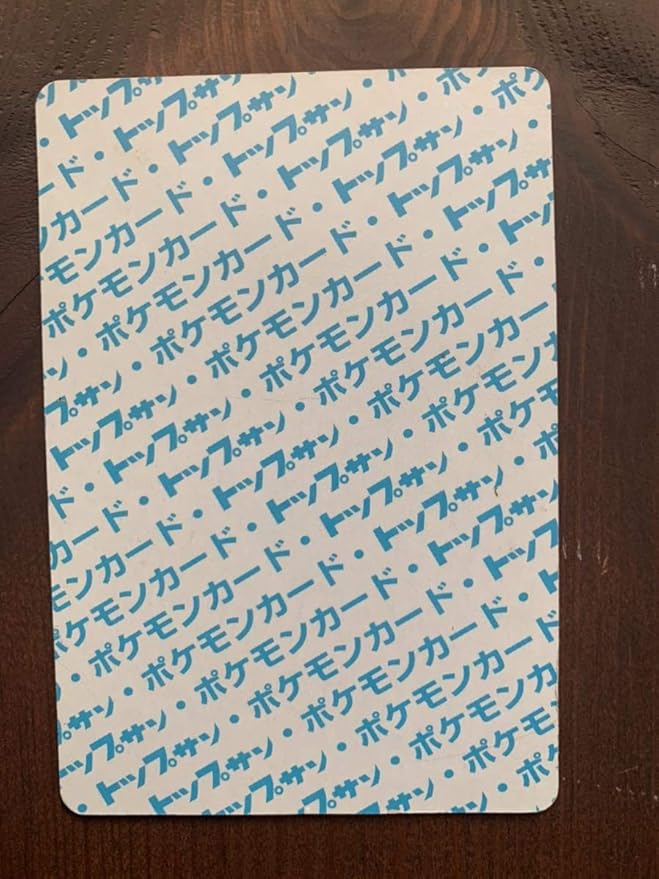 トップサン
ード・トップサン
ンカード・トップサン・
モンカード・トップサン・ポ
ポケモンカード・トップサン・ポケ
・ポケモンカード・トップサン・ポケ
ン・ポケモンカード・トップサン・
プサン・ポケモンカード・トップサン
トップサン・ポケモンカード・トップ
ド・トップサン・ポケモンカード・
カード・トップサン・ポケモンカード
ンカード・トップサン・ポケモンカ
モンカード・トップサン・ポケモン
ケモンカード・トップサン・ポケ
ポケモンカード・トップサン・ポ
・ポケモンカード・トップサン
サン・ポケモンカード・トップ
プサン・ポケモンカード・ト
トップサン・ポケモンカード
・トップサン・ポケモンカ
トップサン・ポケモン
トップサン・ポケ